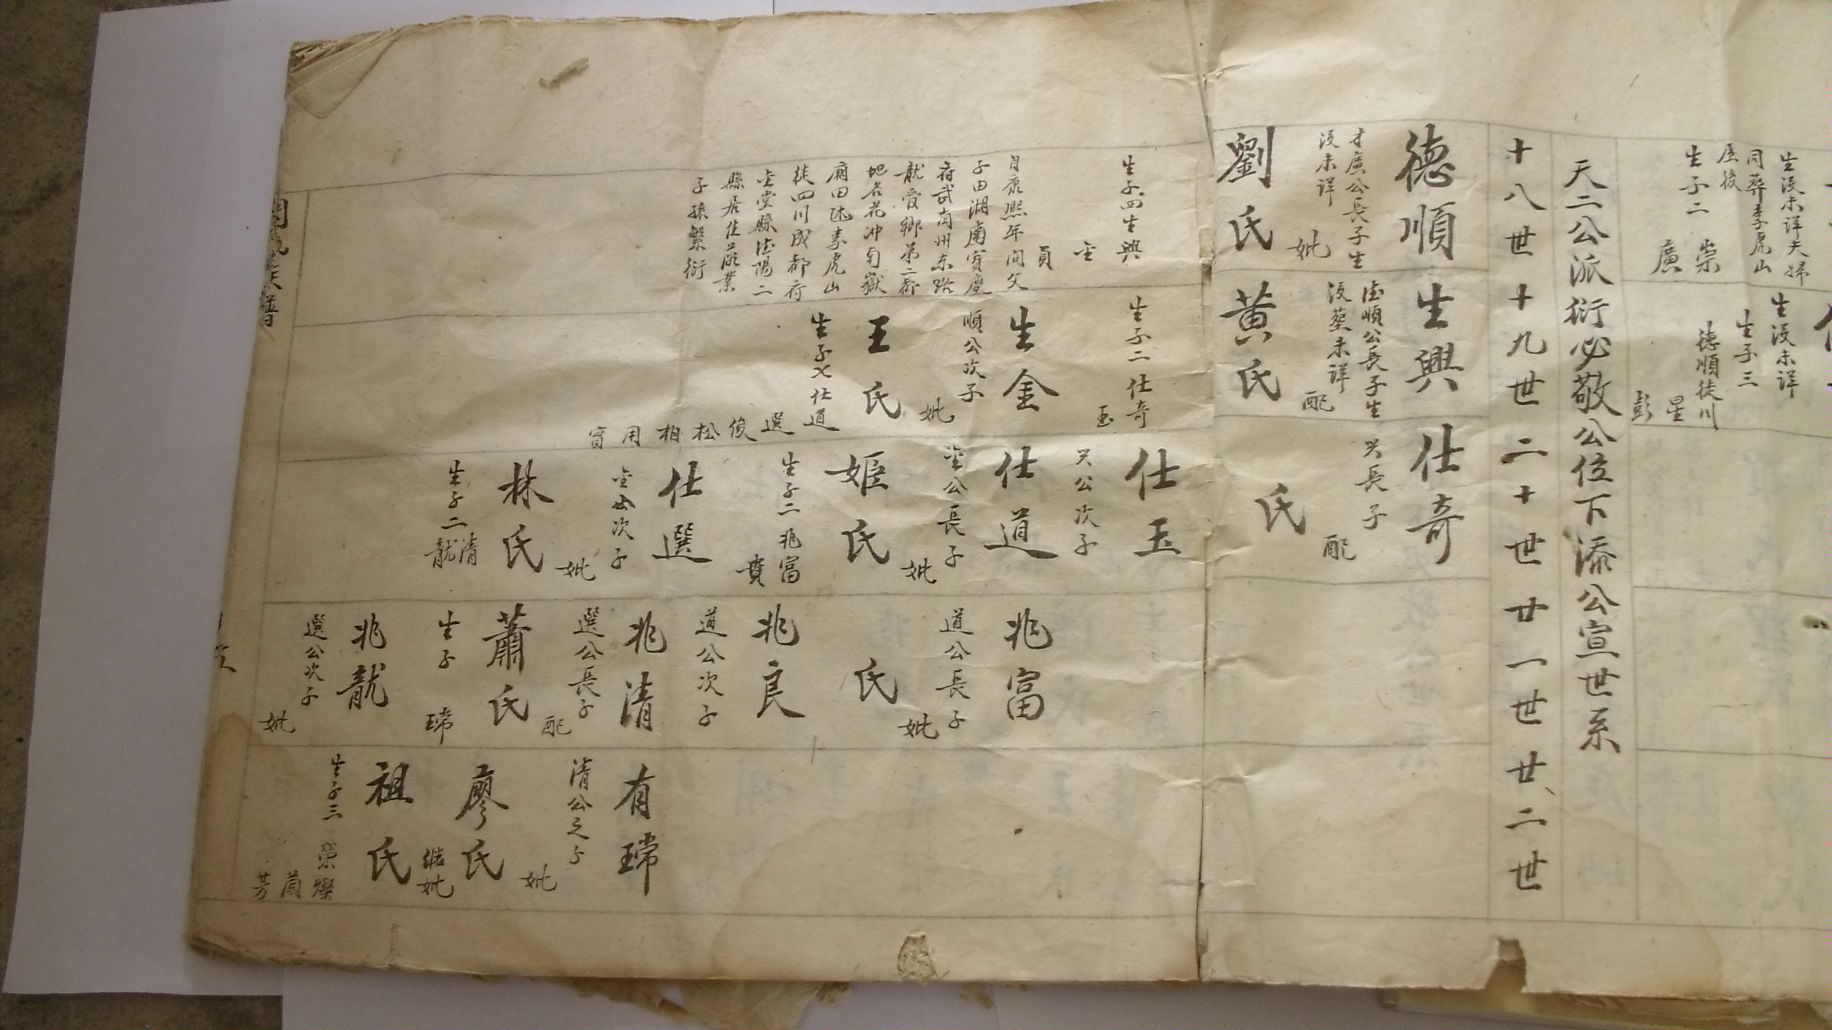 生沒未詳夫婦
同葬李虎山
屋後
生子二 崇
廣
生沒未詳
生子三
德順徙川
星
彭
天二公派衍必敬公位下添公宣世系
十八世
十九世
二十世
廿一世
廿二世
德順
才廣公長子生
沒未詳
妣
劉氏
生子四生興
金
貢
自康熙年間父
子由湖南寶慶
府武岡州東路
龍愛鄉第二都
地名花冲南嶽
廟田沌李虎山
徙四川成都府
金堂縣德陽二
縣居住蔴業
子孫繁衍
生興
德順公長子生
沒葬未詳
配
黃氏
生子二仕奇
玉
生金
順公次子
妣
王氏
生子七仕道
選
俊
松
相
用
富
仕奇
興長子
配
氏
仕玉
興公次子
仕道
金公長子
妣
姬氏
生子二兆富
仕選
金公次子
妣
林氏
生子二清
龍
兆富
道公長子
妣
氏
兆良
道公次子
兆清
選公長子
配
蕭氏
生子
兆龍
選公次子
妣
有
清公之子
妣
廖氏
繼妣
祖氏
生子三 榮燦
蘭
芳